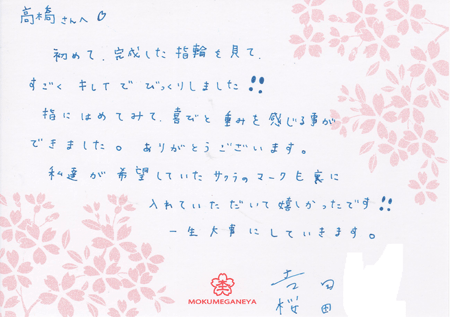 高橋さんへ♡
初めて、完成した指輪を見て、
すごくキレイでびっくりしました!!
指にはめてみて、喜びと重みを感じる事が
できました。ありがとうございます。
私達が希望していたサクラのマークも裏に
入れていただいて嬉しかったです!!
一生大事にしていきます。
吉田
桜田
MOKUMEGANEYA